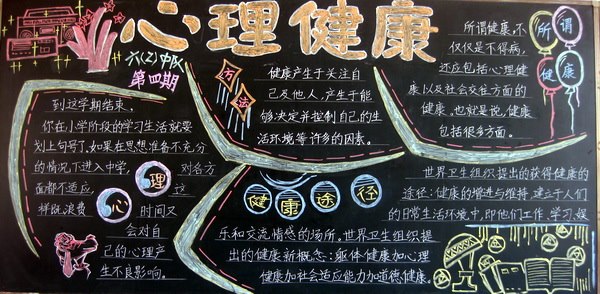 心理健康
六(2)中队
第四期
到这学期结束、
你在小学阶段的学习生活就要
划上句号了,如果在思想准备不充分
的情况下进入中学, 对各方
面都不适应 心理 这
样既浪费 时间又
会对自
己的心理产
生不良影响。
方法
健康产生于关注自
己及他人,产生于能
够决定并控制自己的生
活环境等许多的因素。
所谓健康
所谓健康。不
仅仅是不得病,
还应包括心理健
康以及社会交往方面的
健康,也就是说,健康
包括很多方面。
健康途径
世界卫生组织提出的获得健康的
途径:健康的增进与维持,建立于人们
的日常生活环境中,即他们工作,学习,娱
乐和交流情感的场所。世界卫生组织提
出的健康新概念:躯体健康加心理
健康加社会适应能力加道德健康。